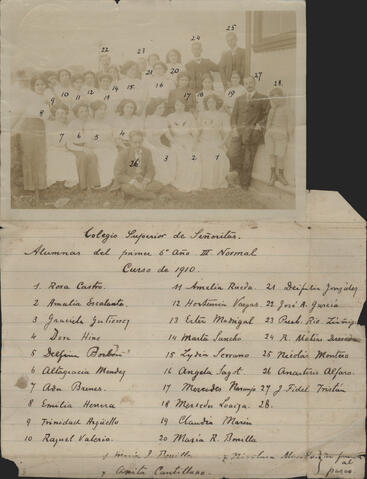 22
23
24
25
21
20
27
28
10
11
12
13
14
15
16
17
18
19
9
8
7
6
5
4
26
3
2
1
Colegio Superior de Señoritas.
Alumnas del primer 6º Año III Normal
Curso de 1910.
1 Rosa Castro.
2 Amalia Escalante.
3 Graciela Gutierrez
4 Dora Hine
5 Delfina Borbón
6 Altagracia Mendez
7 Ada Brenes.
8 Emilia Herrera
9 Trinidad Argüello
10 Raquel Valerio.
11 Amelia Rueda.
12 Hortensia Vargas.
13 Ester Madrigal
14 Marta Sancho
15 Lydia Serrano
16 Angela Sagot
17 Mercedes Naranjo
18 Mercedes Loaiza
19 Claudia Marin
20 Maria R. Bonilla
21 Deifilia González
22 José A. García
23 Presb. Ro. Zúñiga
24 R. Matias
25 Nicolás Montero
26 Anastasio Alfaro.
27 J. Fidel Tristán
28.
J. Bonilla
x Anita Cantillano.
al paseo.